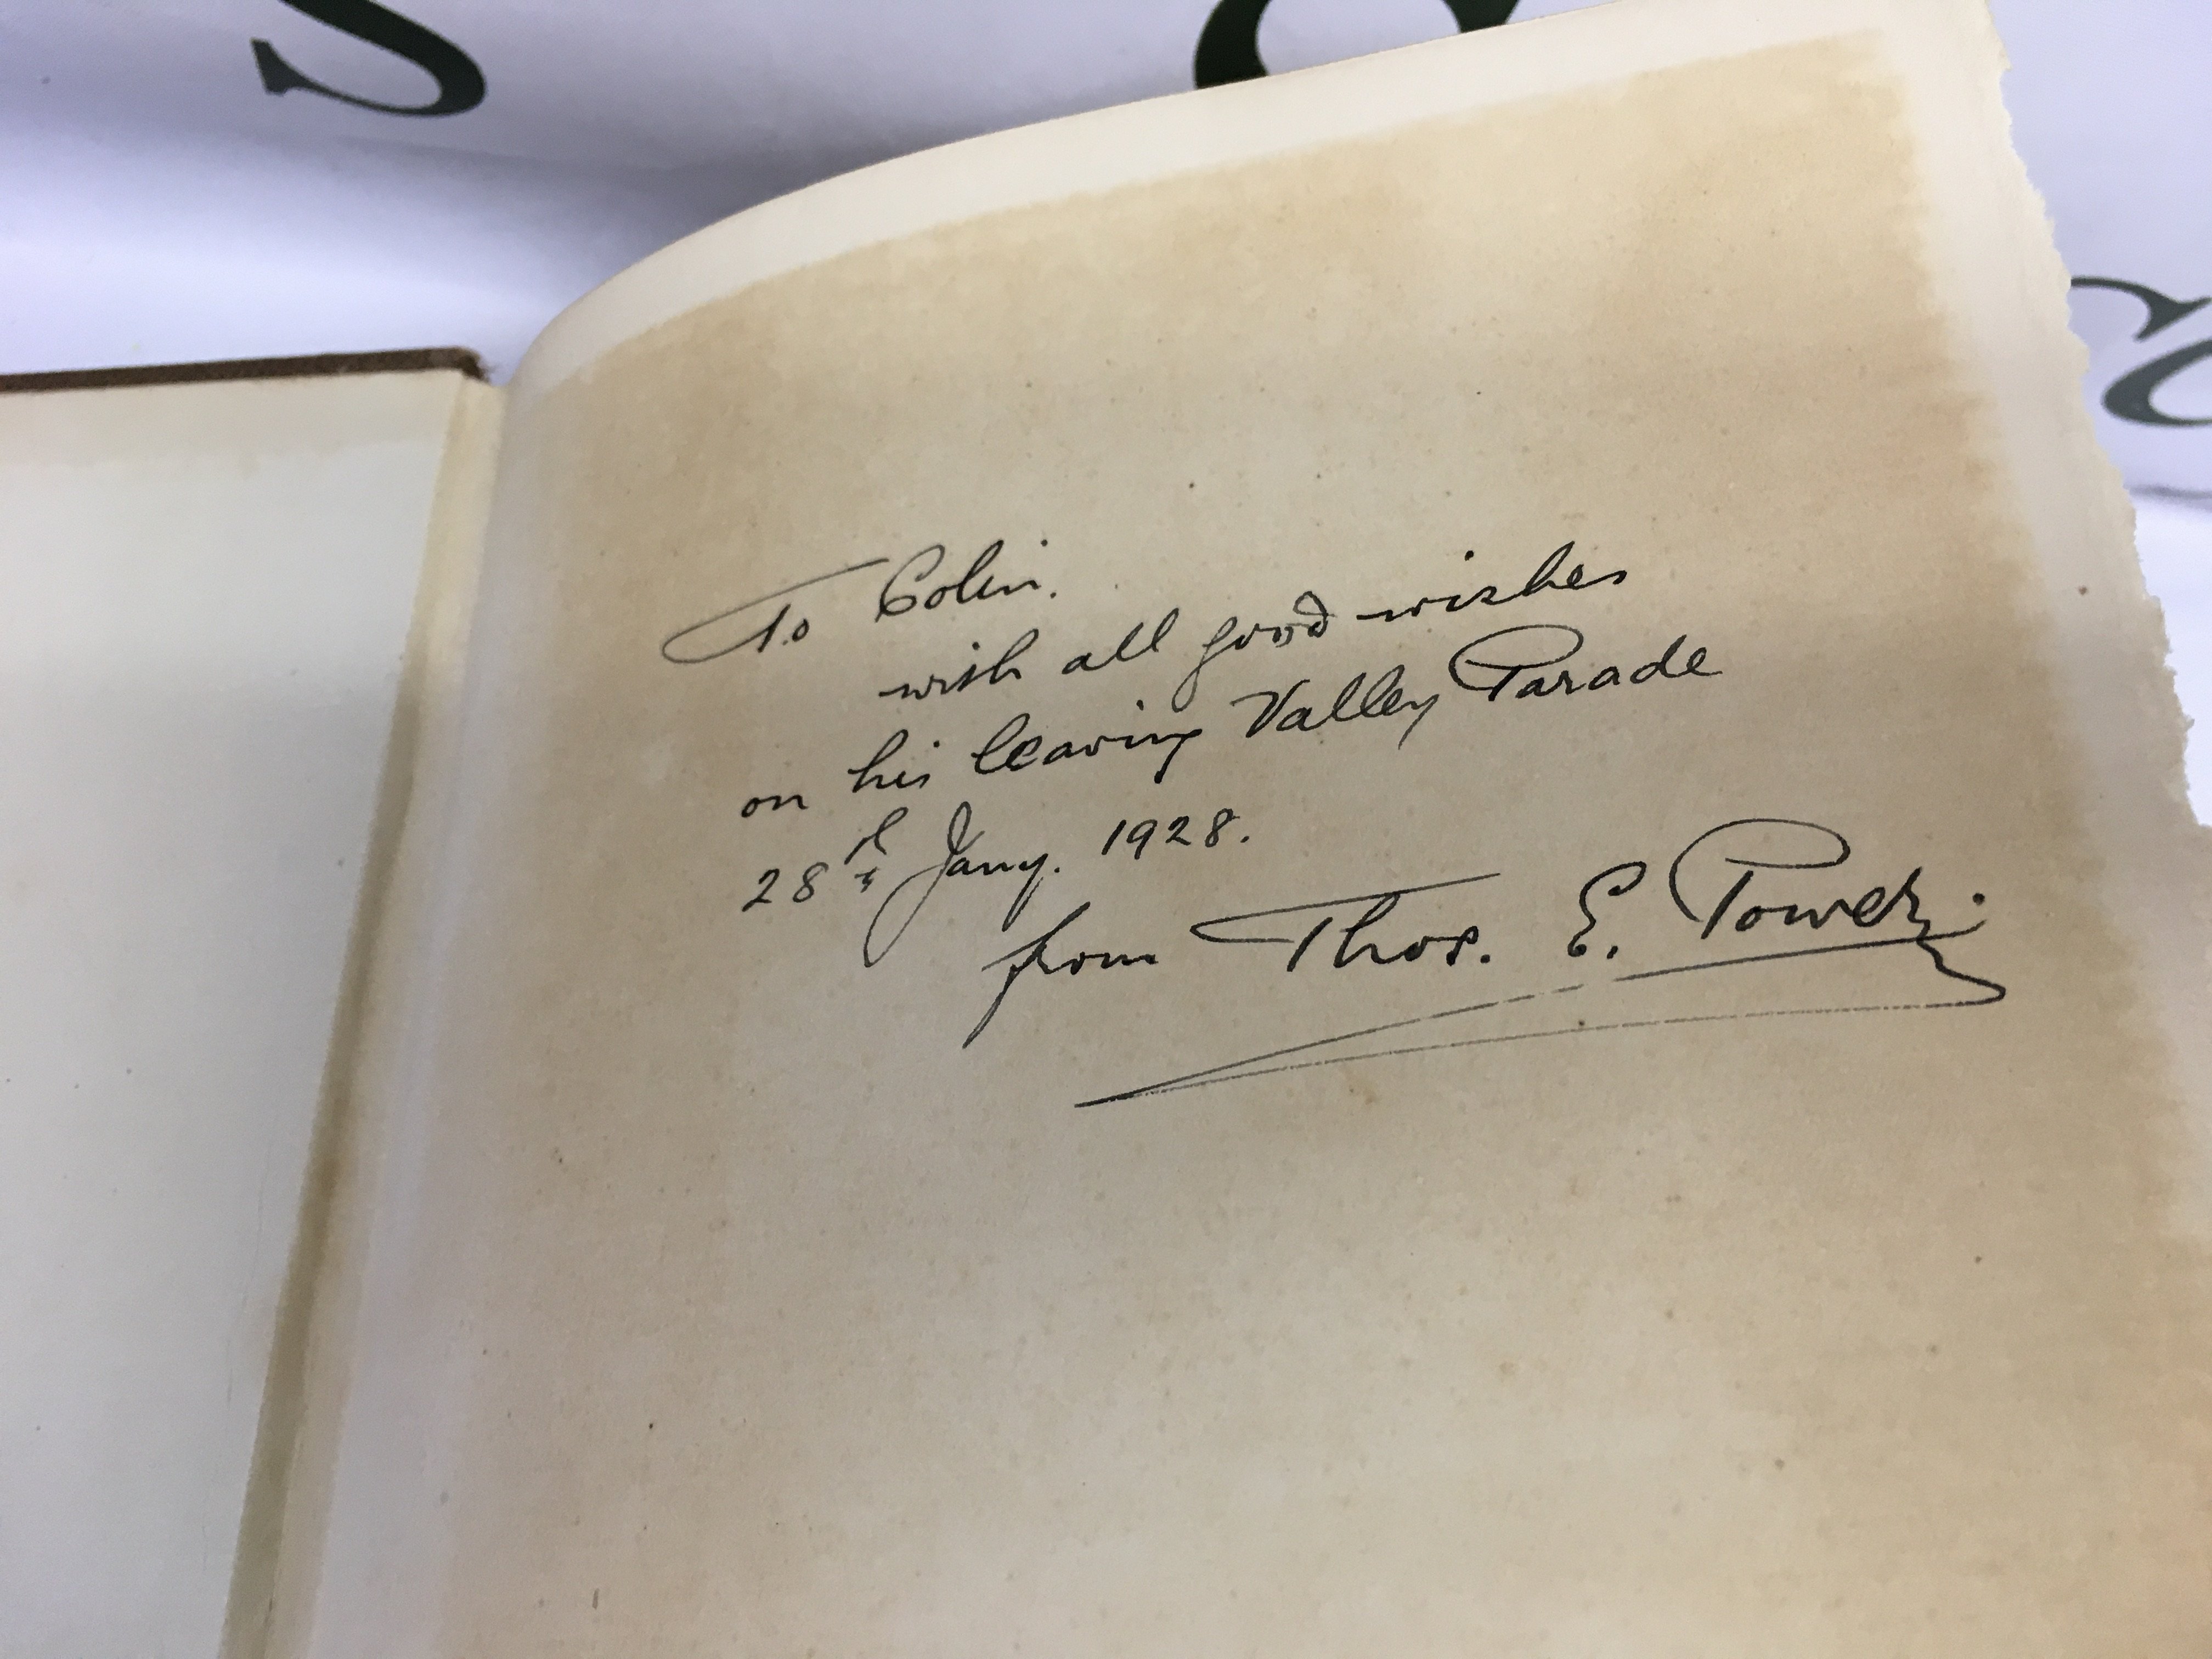 To Colin.
with all good wishes
on his leaving Valley Parade
28th Jany. 1928.
from Thos. E. Power.